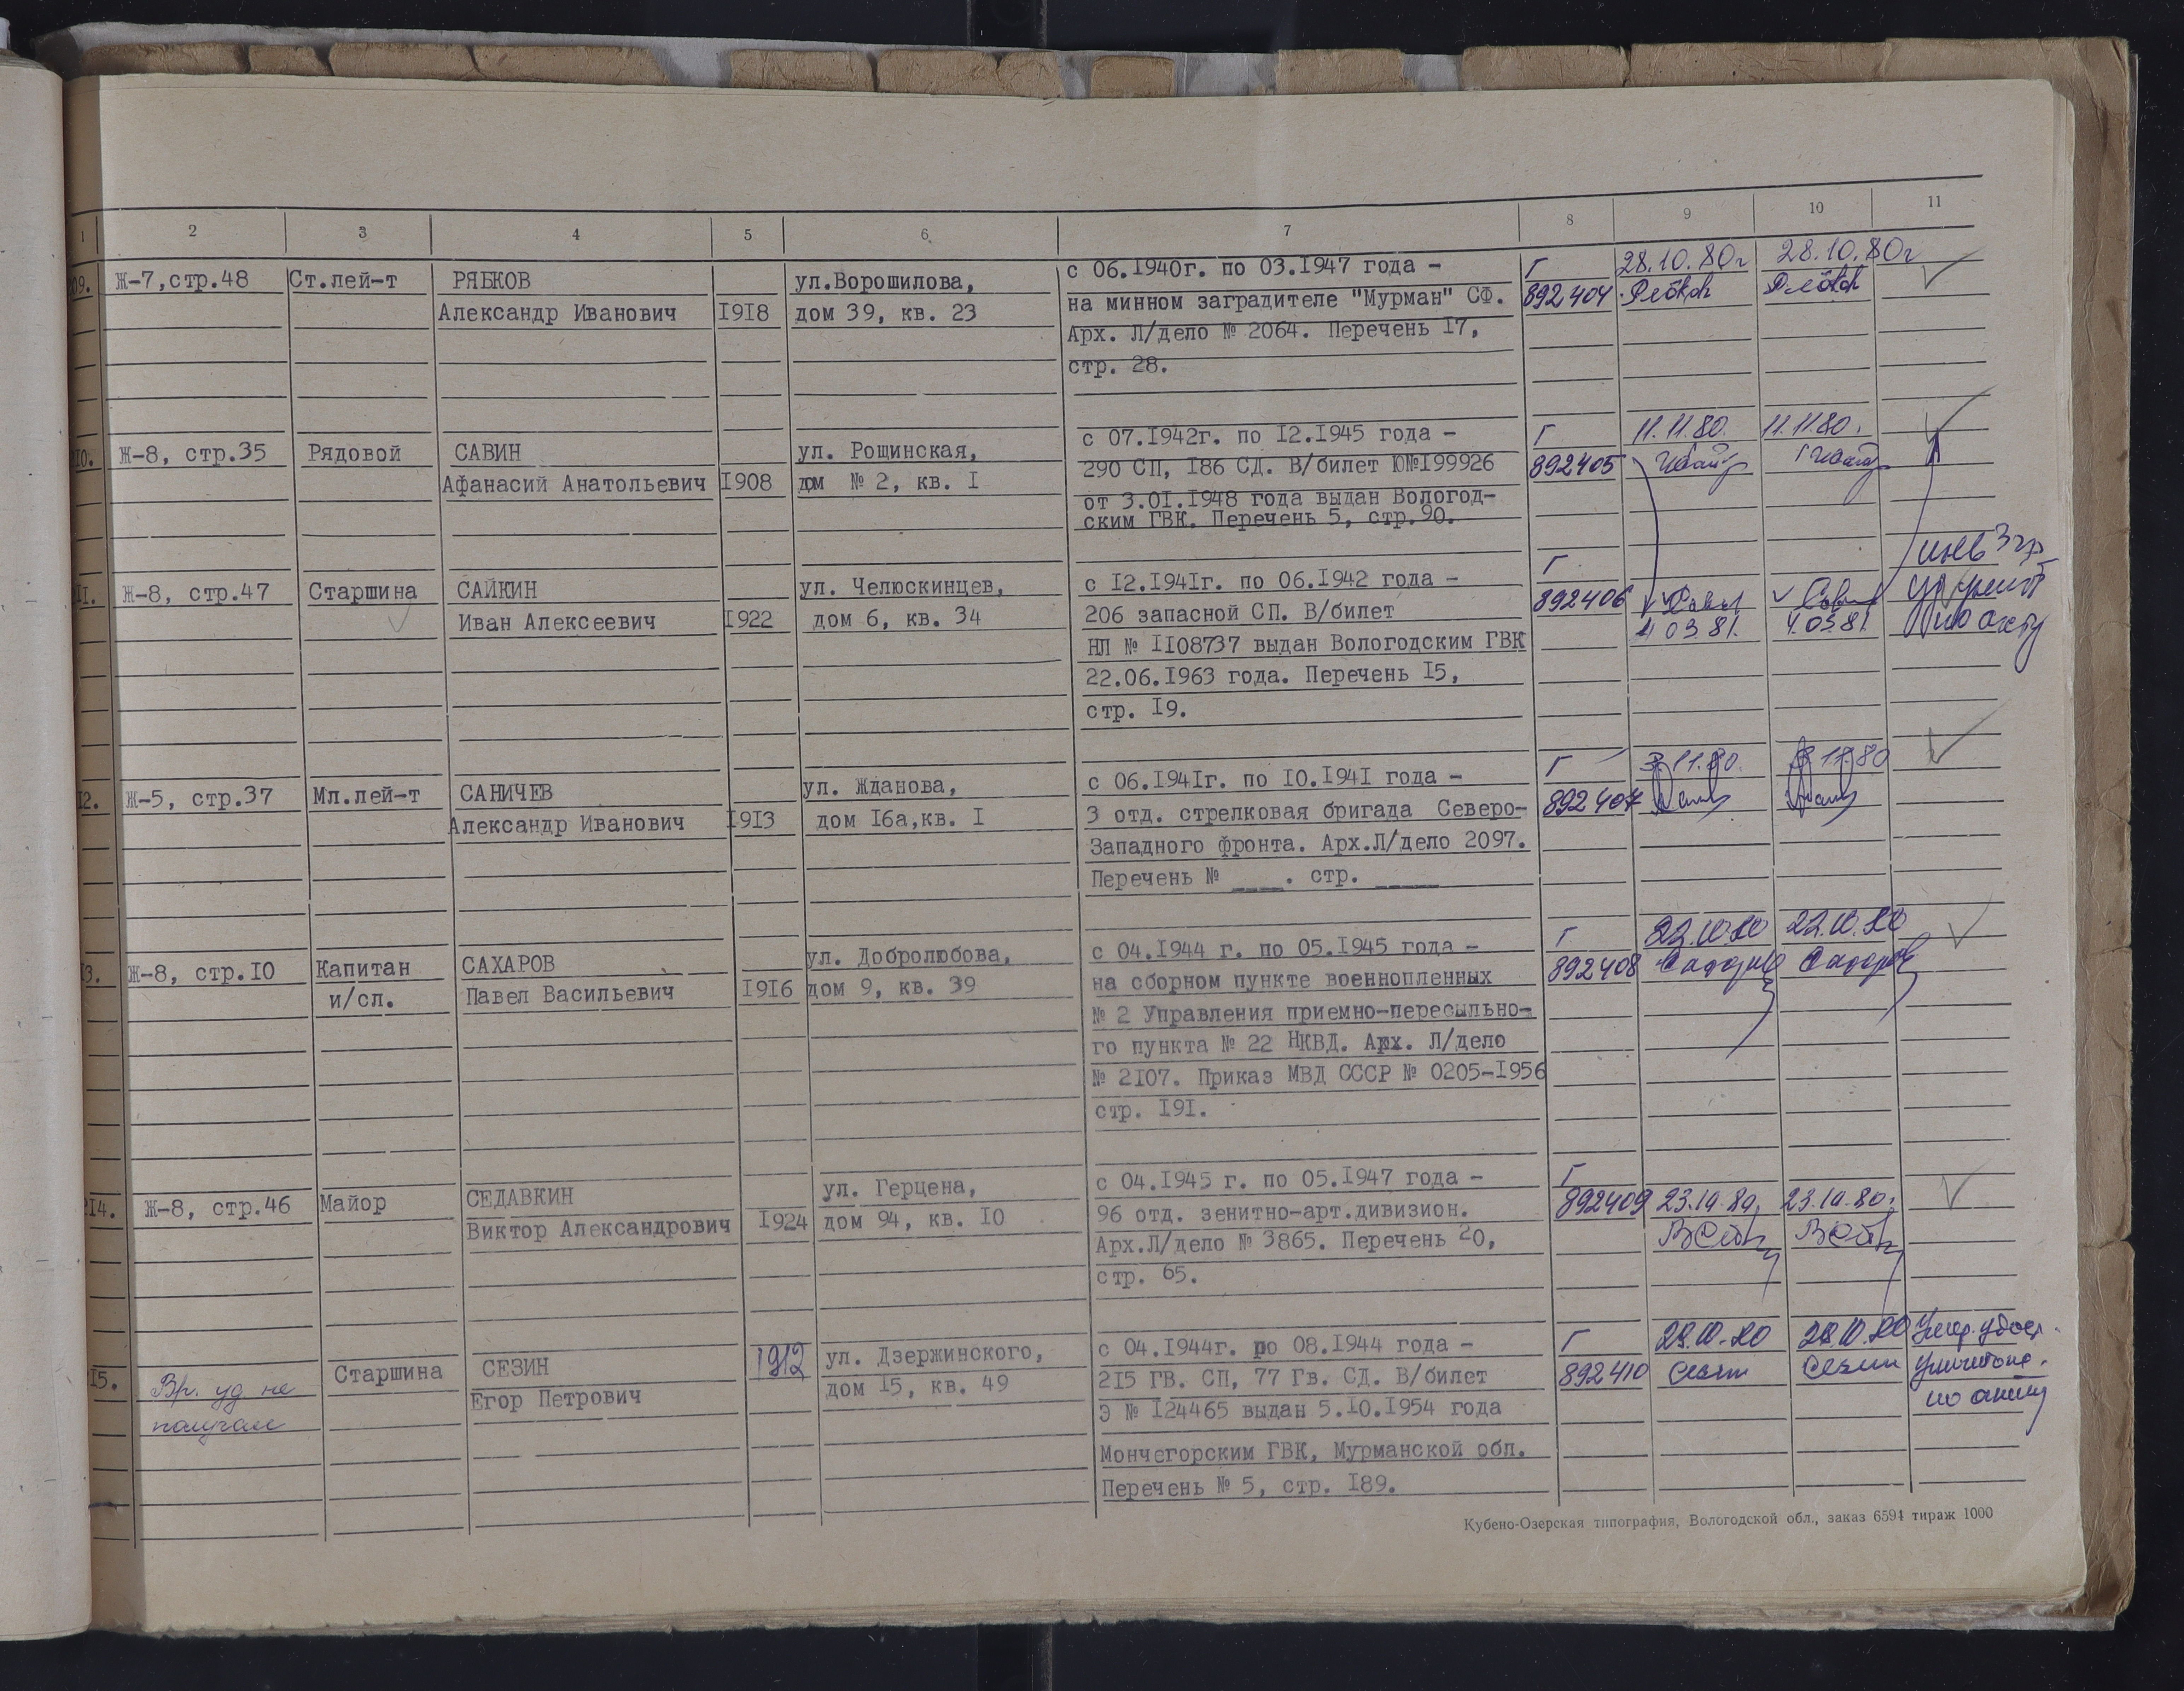 1 2 3 4 5 6 7 8 9 10 11
09. Ж-7,стр.48 Ст.лей-т РЯБКОВ
Александр Иванович 1918
ул.Ворошилова,
дом 39, кв. 23
с 06.1940г. по 03.1947 года -
на минном заградителе "Мурман" СФ.
Арх. Л/дело № 2064. Перечень 17,
стр. 28.
Г
892404
28.10.80г
28.10.80г
10. Ж-8, стр.35 Рядовой САВИН
Афанасий Анатольевич 1908
ул. Рощинская,
дом № 2, кв. 1
с 07.1942г. по 12.1945 года -
290 СП, 186 СД. В/билет Ю№199926
от 3.01.1948 года выдан Вологод-
ским ГВК. Перечень 5, стр.90.
Г
892405
11.11.80.
11.11.80.
11. Ж-8, стр.47 Старшина САЙКИН
Иван Алексеевич 1922
ул. Челюскинцев,
дом 6, кв. 34
с 12.1941г. по 06.1942 года -
206 запасной СП. В/билет
НЛ № 1108737 выдан Вологодским ГВК
22.06.1963 года. Перечень 15,
стр. 19.
Г
892406
4.03.81.
4.03.81.
по акту
12. Ж-5, стр.37 Мл.лей-т САНИЧЕВ
Александр Иванович 1913
ул. Жданова,
дом 16а,кв. 1
с 06.1941г. по 10.1941 года -
3 отд. стрелковая бригада Северо-
Западного фронта. Арх.Л/дело 2097.
Перечень № ____. стр. _____
Г
892407
3.11.80.
3.11.80
13. Ж-8, стр.10 Капитан
и/сл.
САХАРОВ
Павел Васильевич 1916
ул. Добролюбова,
дом 9, кв. 39
с 04.1944 г. по 05.1945 года -
на сборном пункте военнопленных
№ 2 Управления приемно-пересыльно-
го пункта № 22 НКВД. Арх. Л/дело
№ 2107. Приказ МВД СССР № 0205-1956
стр. 191.
Г
892408
22.10.80
22.10.80
Сахаров
Сахаров
214. Ж-8, стр.46 Майор СЕДАВКИН
Виктор Александрович 1924
ул. Герцена,
дом 94, кв. 10
с 04.1945 г. по 05.1947 года -
96 отд. зенитно-арт.дивизион.
Арх.Л/дело № 3865. Перечень 20,
стр. 65.
Г
892409
23.10.80.
23.10.80.
15. Вр. уд не
получал
Старшина СЕЗИН
Егор Петрович 1912
ул. Дзержинского,
дом 15, кв. 49
с 04.1944г. по 08.1944 года -
215 ГВ. СП, 77 Гв. СД. В/билет
Э № 124465 выдан 5.10.1954 года
Мончегорским ГВК, Мурманской обл.
Перечень № 5, стр. 189.
Г
892410
Сезин
Сезин
Умер. удост.
уничтоже.
по акту
Кубено-Озерская типография, Вологодской обл., заказ 6594 тираж 1000